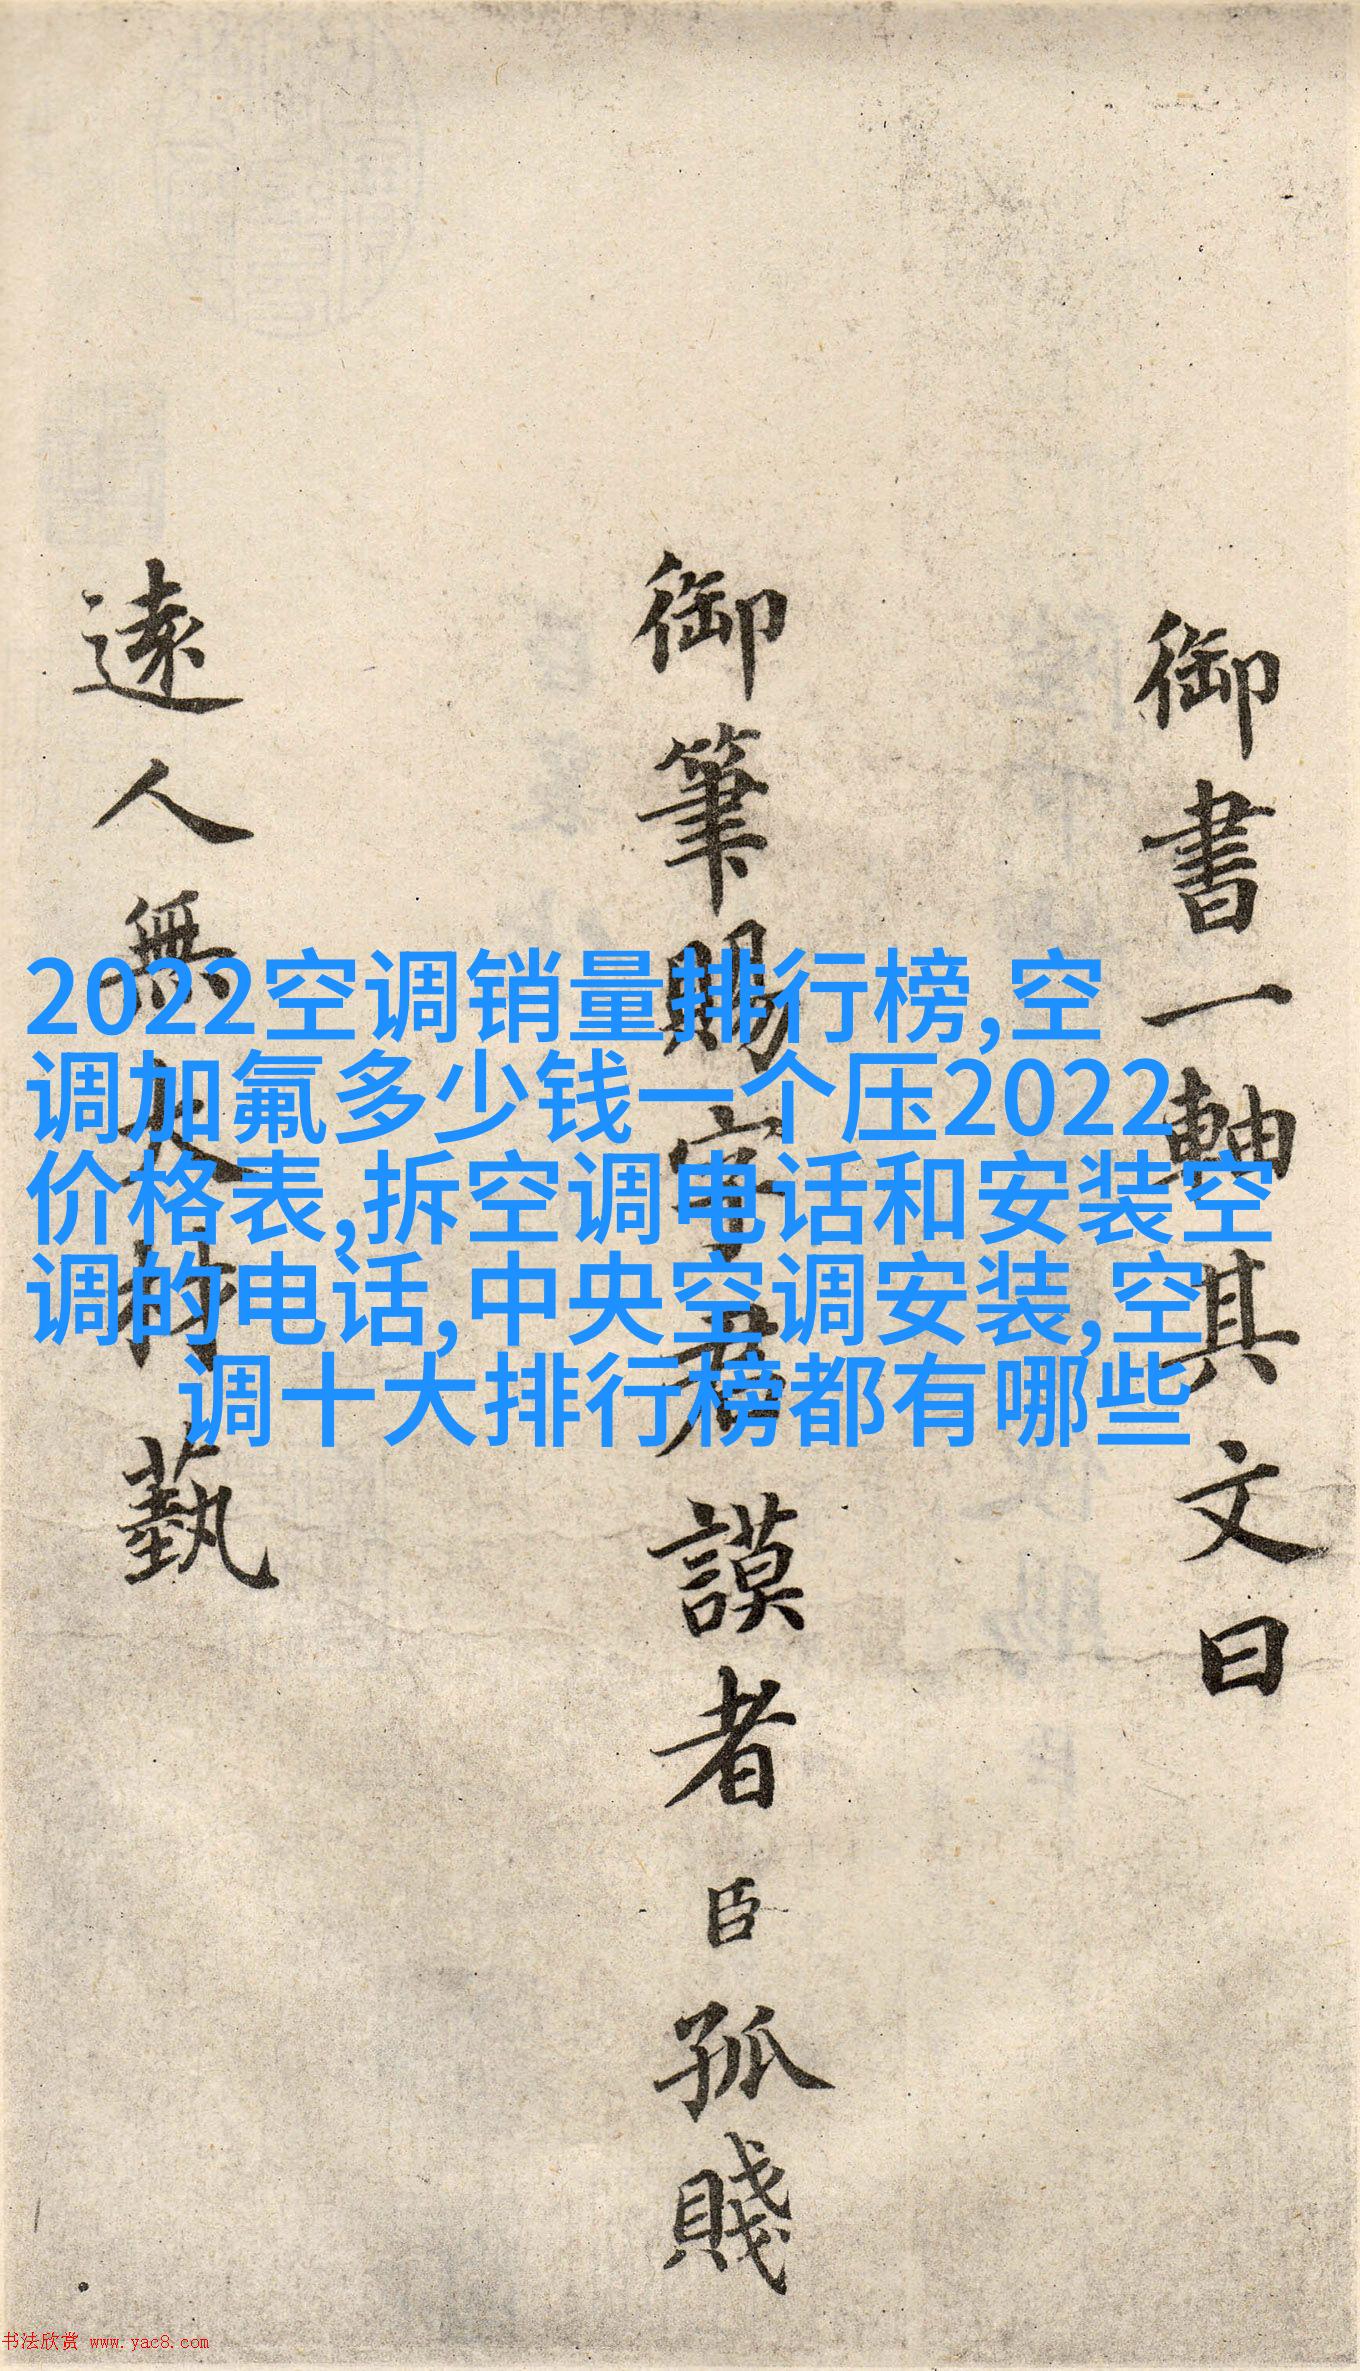 御書一軸其文曰
御筆賜字君謨者臣孤賤
遠人無大材藝
2022空调销量排行榜,空
调加氟多少钱一个压2022
价格表,拆空调电话和安装空
调的电话,中央空调安装,空
调十大排行榜都有哪些
书法欣赏 www.yac8.com